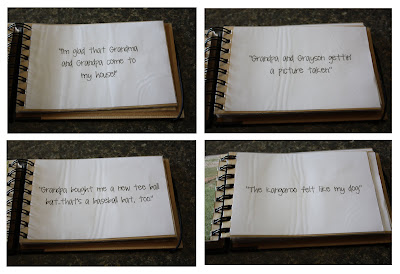 "I'm glad that Grandma
and Grandpa come to
my house!"
"Grandpa and Grayson gettin'
a picture taken"
"Grandpa bought me a new tee ball
bat..that's a baseball bat, too"
"The Kangaroo felt like my dog"